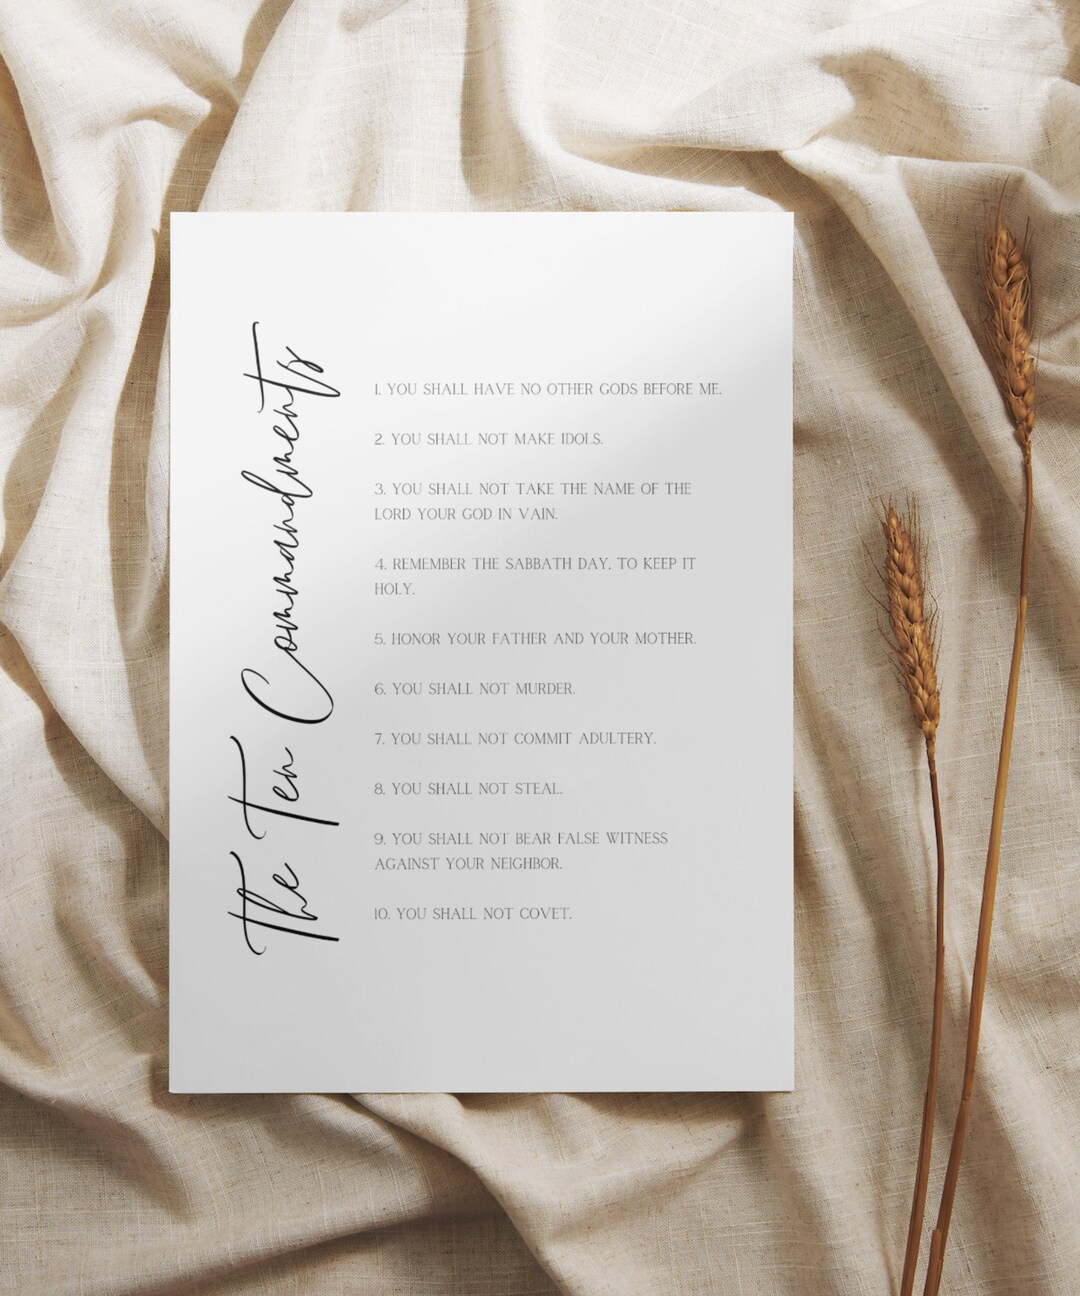 The Ten Commandments
1. YOU SHALL HAVE NO OTHER GODS BEFORE ME.
2. YOU SHALL NOT MAKE IDOLS.
3. YOU SHALL NOT TAKE THE NAME OF THE
LORD YOUR GOD IN VAIN.
4. REMEMBER THE SABBATH DAY, TO KEEP IT
HOLY.
5. HONOR YOUR FATHER AND YOUR MOTHER.
6. YOU SHALL NOT MURDER.
7. YOU SHALL NOT COMMIT ADULTERY.
8. YOU SHALL NOT STEAL.
9. YOU SHALL NOT BEAR FALSE WITNESS
AGAINST YOUR NEIGHBOR.
10. YOU SHALL NOT COVET.